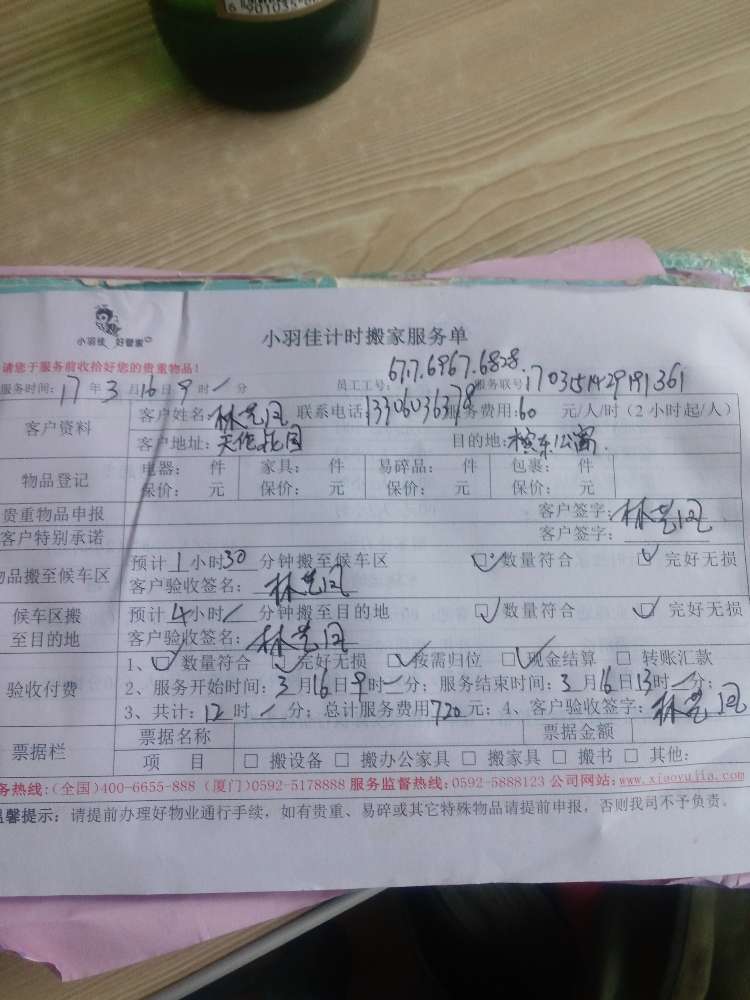 小羽佳 好管家
小羽佳计时搬家服务单
请您于服务前收拾好您的贵重物品!
服务时间: 17 年 3 月 16 日 9 时 / 分 员工工号: 677.6967.6828. 服务联号:
客户资料 客户姓名: 林艺凤 联系电话 服务费用: 60 元/人/时 (2小时起/人)
客户地址: 目的地:
物品登记 电器: 件 家具: 件 易碎品: 件 包裹: 件
保价: 元 保价: 元 保价: 元 保价: 元
贵重物品申报 客户签字: 林艺凤
客户特别承诺 客户签字:
物品搬至候车区 预计 1 小时 30 分钟搬至候车区 ☑ 数量符合 ☑ 完好无损
客户验收签名: 林艺凤
候车区搬至目的地 预计 4 小时 / 分钟搬至目的地 ☑ 数量符合 ☑ 完好无损
客户验收签名: 林艺凤
验收付费 1、☑ 数量符合 ☑ 完好无损 ☑ 按需归位 ☑ 现金结算 □ 转账汇款
2、服务开始时间: 3 月 16 日 9 时 / 分; 服务结束时间: 3 月 16 日 13 时 / 分;
3、共计: 12 时 / 分; 总计服务费用 720 元; 4、客户验收签字: 林艺凤
票据栏 票据名称 票据金额
项 目 □ 搬设备 □ 搬办公家具 □ 搬家具 □ 搬书 □ 其他:
务热线: (全国)400-6655-888 (厦门)0592-5178888 服务监督热线: 0592-5888123 公司网站: www.xiaoyujia.com
温馨提示: 请提前办理好物业通行手续, 如有贵重、易碎或其它特殊物品请提前申报, 否则我司不予负责。